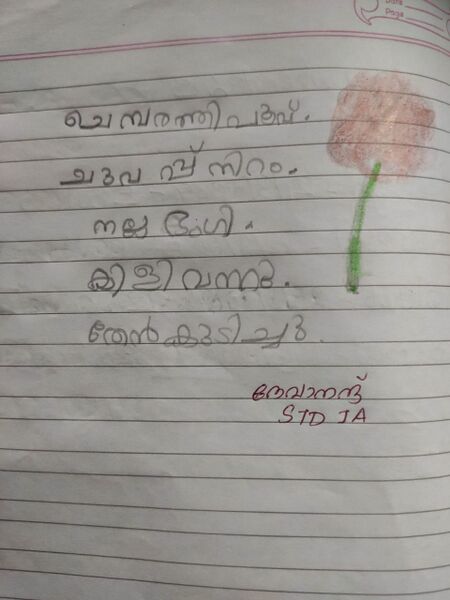 Date
Page
ചെമ്പരത്തി പൂവ്.
ചുവപ്പ് നിറം.
നല്ല ഭംഗി.
കിളി വന്നു.
തേൻ കുടിച്ചു.
ദേവാനന്ദ്
STD IA